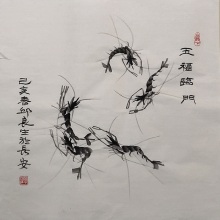 五福臨門
己亥春邱良生於長安